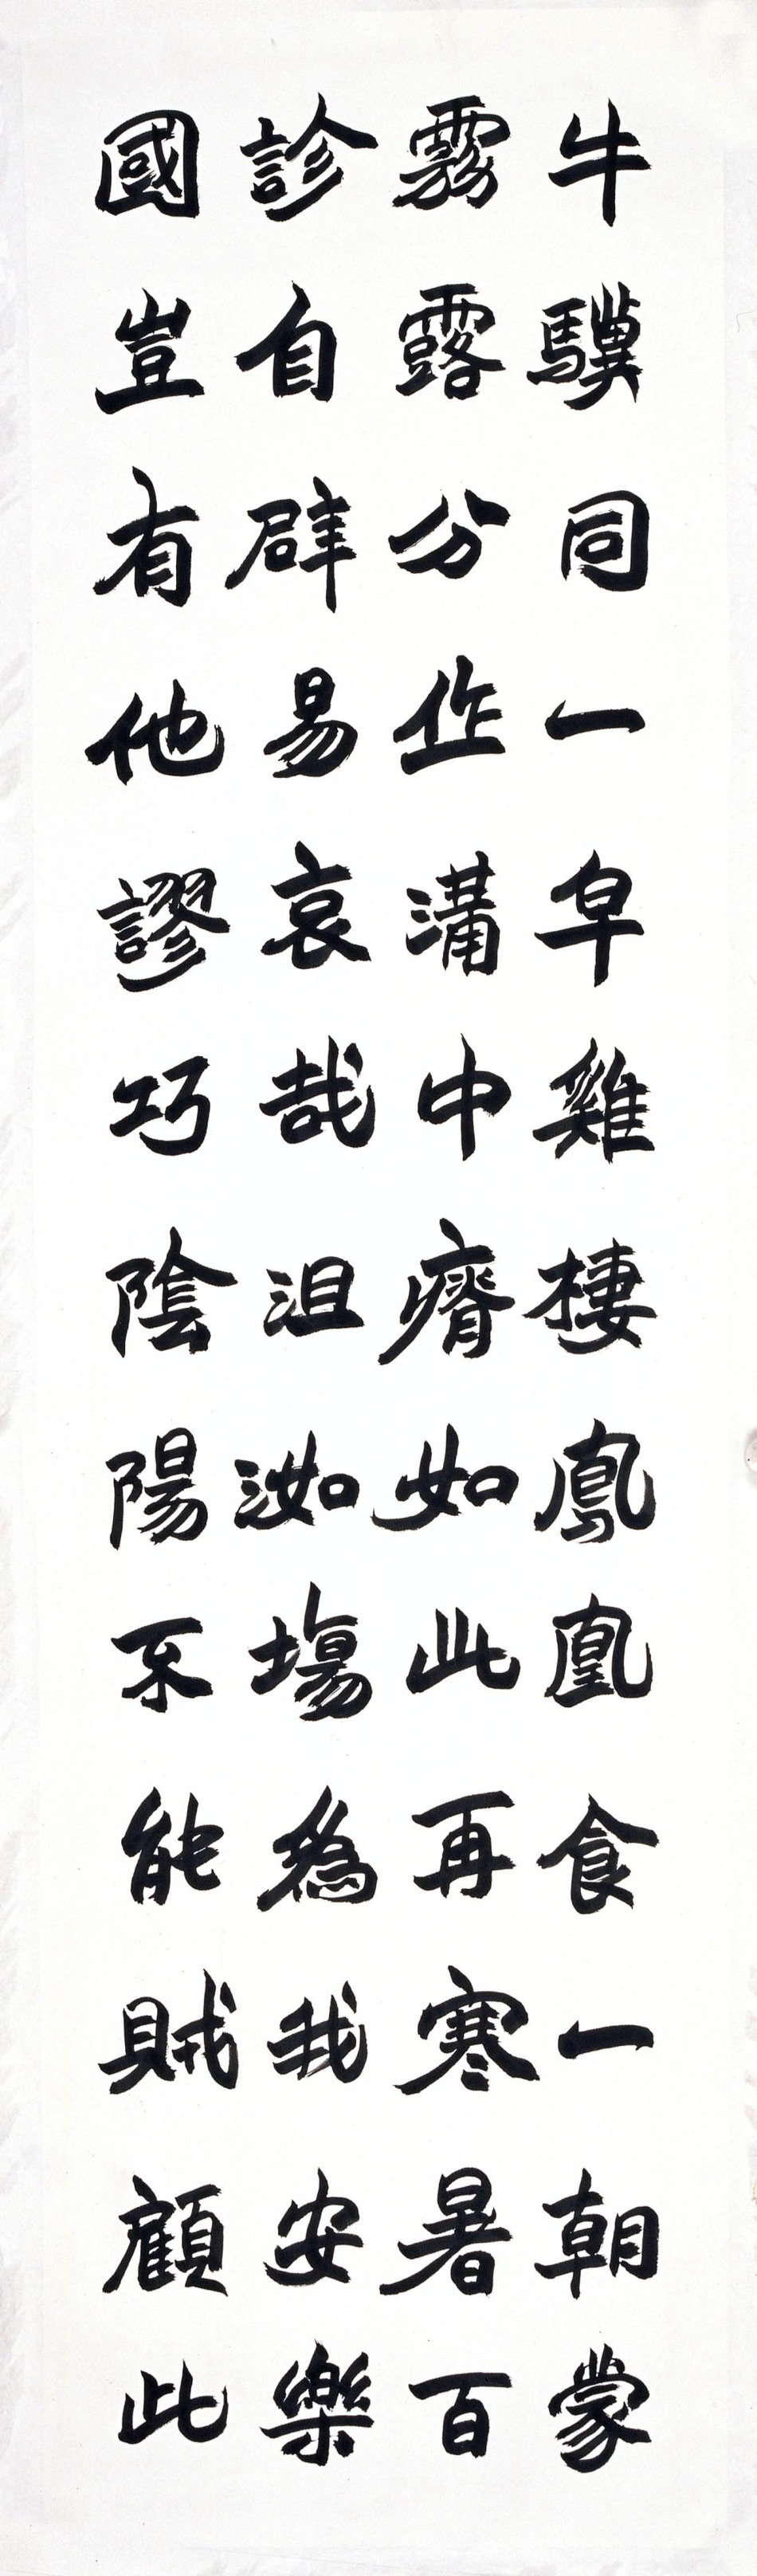 牛驥同一皁雞棲鳳凰食一朝蒙
霧露分作溝中瘠如此再寒暑百
診自辟易哀哉沮洳塲為我安樂
國豈有他謬巧陰陽不能賊顧此